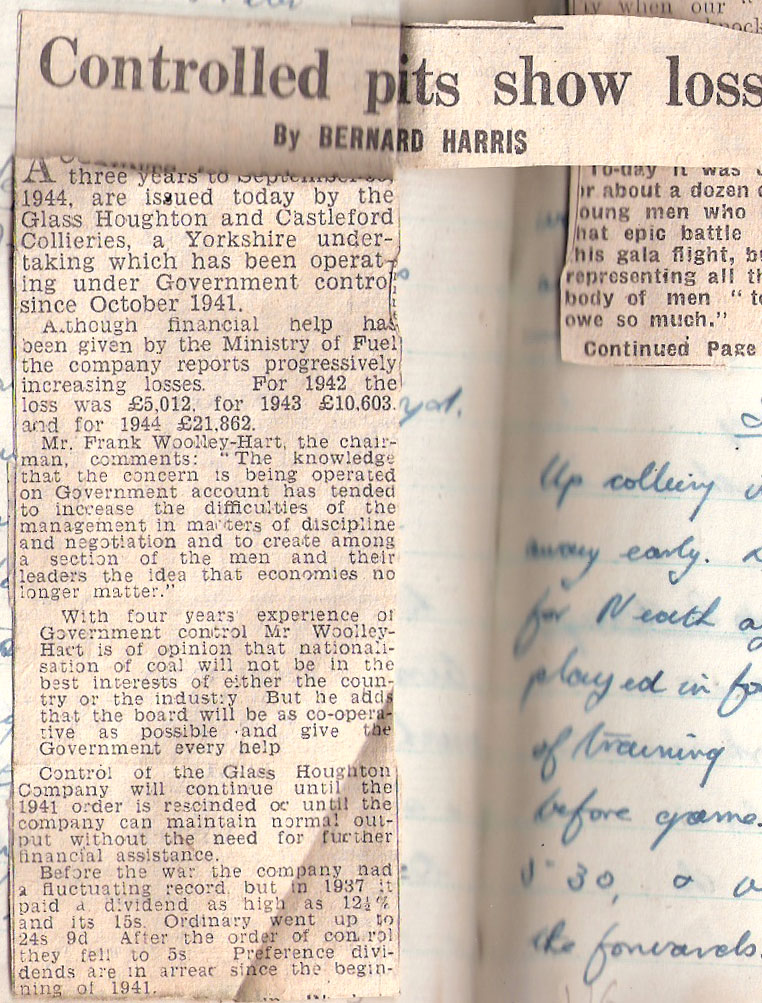 ty when our "
Controlled pits show loss
By BERNARD HARRIS
three years to September
1944, are issued today by the
Glass Houghton and Castleford
Collieries, a Yorkshire under-
taking which has been operat-
ing under Government control
since October 1941.
Although financial help has
been given by the Ministry of Fuel
the company reports progressively
increasing losses. For 1942 the
loss was £5,012, for 1943 £10,603,
and for 1944 £21,862.
Mr. Frank Woolley-Hart, the chair-
man, comments: "The knowledge
that the concern is being operated
on Government account has tended
to increase the difficulties of the
management in matters of discipline
and negotiation and to create among
a section of the men and their
leaders the idea that economies no
longer matter."
With four years experience of
Government control Mr Woolley-
Hart is of opinion that nationali-
sation of coal will not be in the
best interests of either the coun-
try or the industry But he adds
that the board will be as co-opera-
tive as possible and give the
Government every help
Control of the Glass Houghton
Company will continue until the
1941 order is rescinded or until the
company can maintain normal out-
put without the need for further
financial assistance.
Before the war the company had
a fluctuating record, but in 1937 it
paid a dividend as high as 12½%
and its 15s. Ordinary went up to
24s 9d After the order of control
they fell to 5s Preference divi-
dends are in arrear since the begin-
ning of 1941.
To-day it was
or about a dozen
oung men who
hat epic battle
his gala flight, bu
representing all th
body of men "to
owe so much."
Continued Page
Up colliery
away early.
for Neath ag
played in fo
of training
before game.
5 30, &
the forwards.